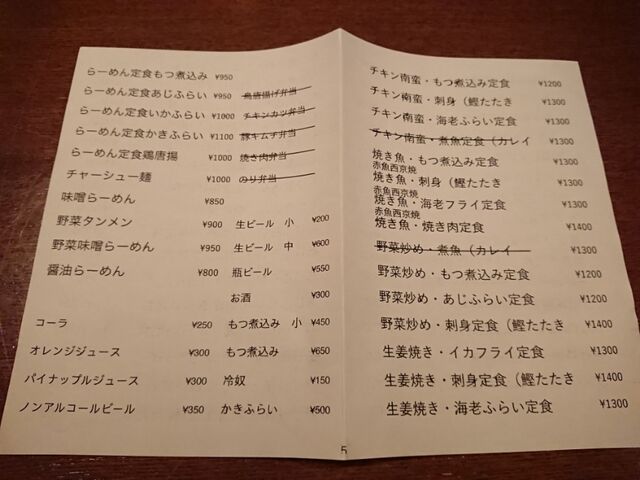 らーめん定食もつ煮込み ¥950
らーめん定食あじふらい ¥950 鳥唐揚げ弁当
らーめん定食いかふらい ¥1000 チキンカツ弁当
らーめん定食かきふらい ¥1100 豚キムチ弁当
らーめん定食鶏唐揚 ¥1000 焼き肉弁当
チャーシュー麺 ¥1000 のり弁当
味噌らーめん ¥850
野菜タンメン ¥900 生ビール 小 ¥200
野菜味噌らーめん ¥950 生ビール 中 ¥600
醤油らーめん ¥800 瓶ビール ¥550
お酒 ¥300
コーラ ¥250 もつ煮込み 小 ¥450
オレンジジュース ¥300 もつ煮込み ¥650
パイナップルジュース ¥300 冷奴 ¥150
ノンアルコールビール ¥350 かきふらい ¥500
チキン南蛮・もつ煮込み定食 ¥1200
チキン南蛮・刺身（鰹たたき ¥1300
チキン南蛮・海老ふらい定食 ¥1300
チキン南蛮・煮魚定食（カレイ ¥1300
焼き魚・もつ煮込み定食 ¥1300
赤魚西京焼
焼き魚・刺身（鰹たたき ¥1300
赤魚西京焼
焼き魚・海老フライ定食 ¥1300
赤魚西京焼
焼き魚・焼き肉定食 ¥1400
野菜炒め・煮魚（カレイ ¥1300
野菜炒め・もつ煮込み定食 ¥1200
野菜炒め・あじふらい定食 ¥1200
野菜炒め・刺身定食（鰹たたき ¥1400
生姜焼き・イカフライ定食 ¥1300
生姜焼き・刺身定食（鰹たたき ¥1400
生姜焼き・海老ふらい定食 ¥1300
5